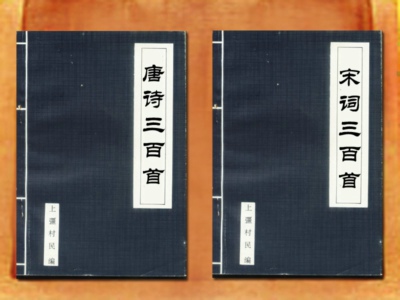 唐诗三百首
上彊村民编
宋词三百首
上彊村民编